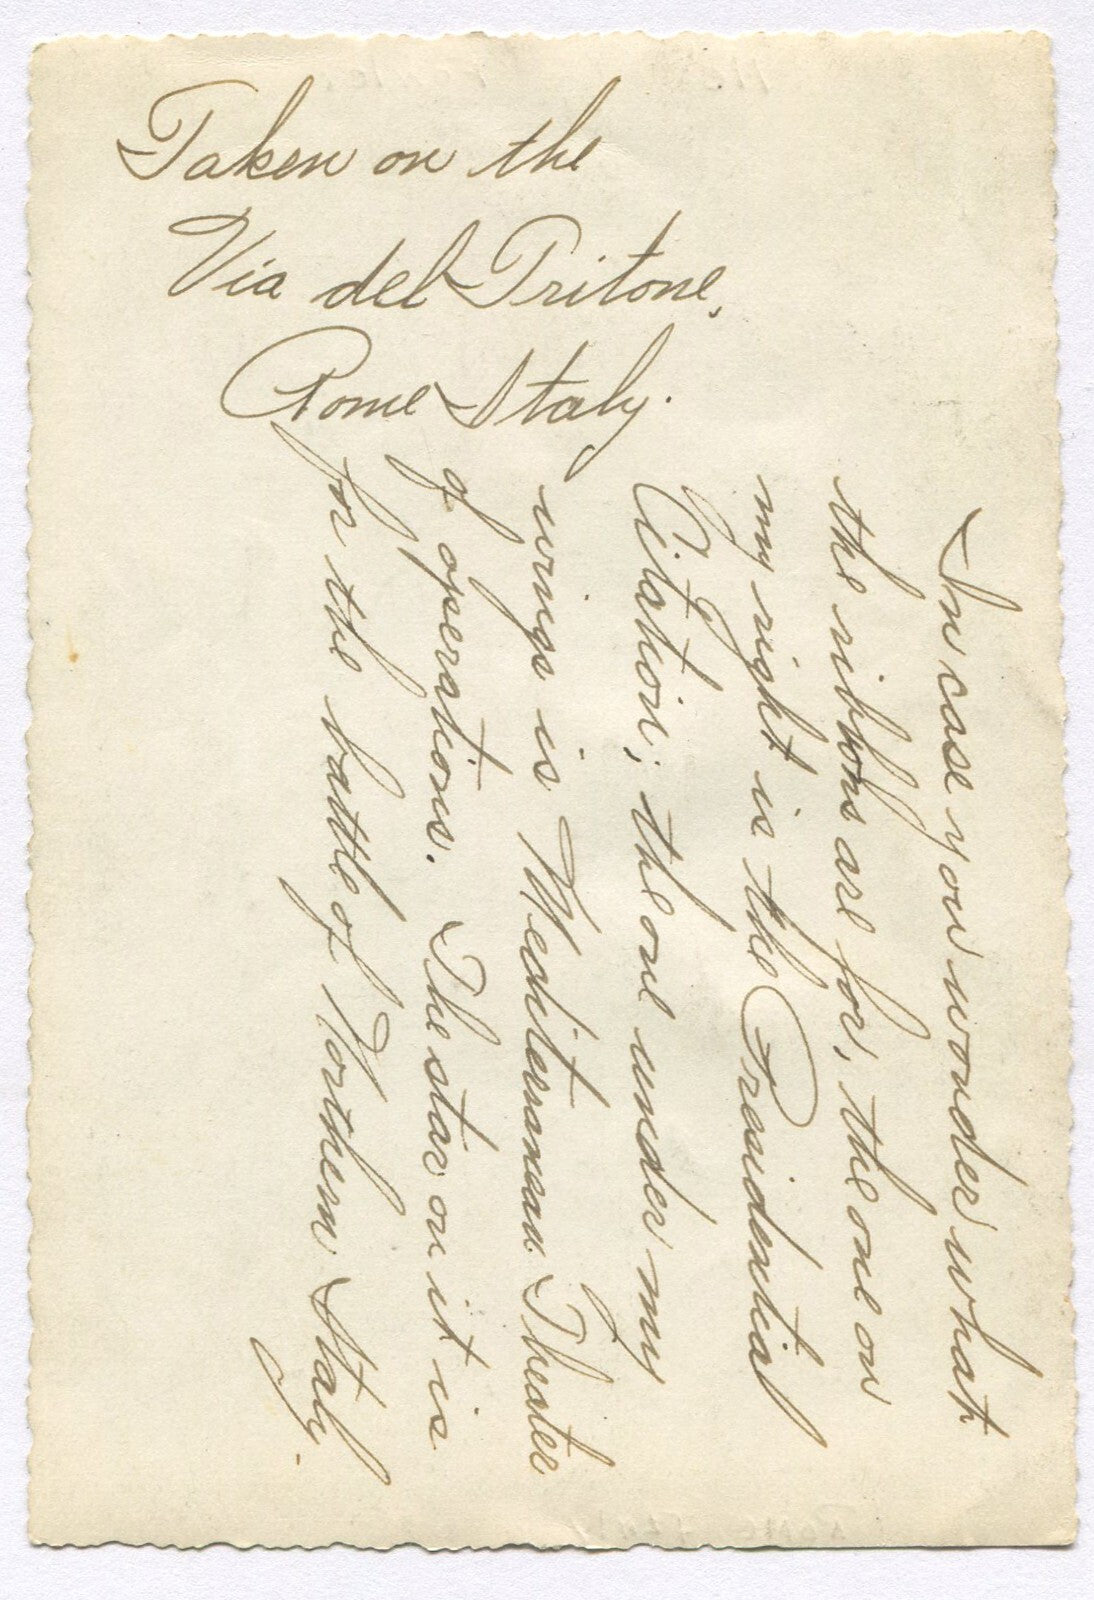 Taken on the
Via del Tritone,
Rome Italy.
In case you wonder what
the ribbons are for, the one on
my right is the Presidential
Citation; the one under my
wings is Mediterranean Theater
of operations. The star on it is
for the battle of Northern Italy.